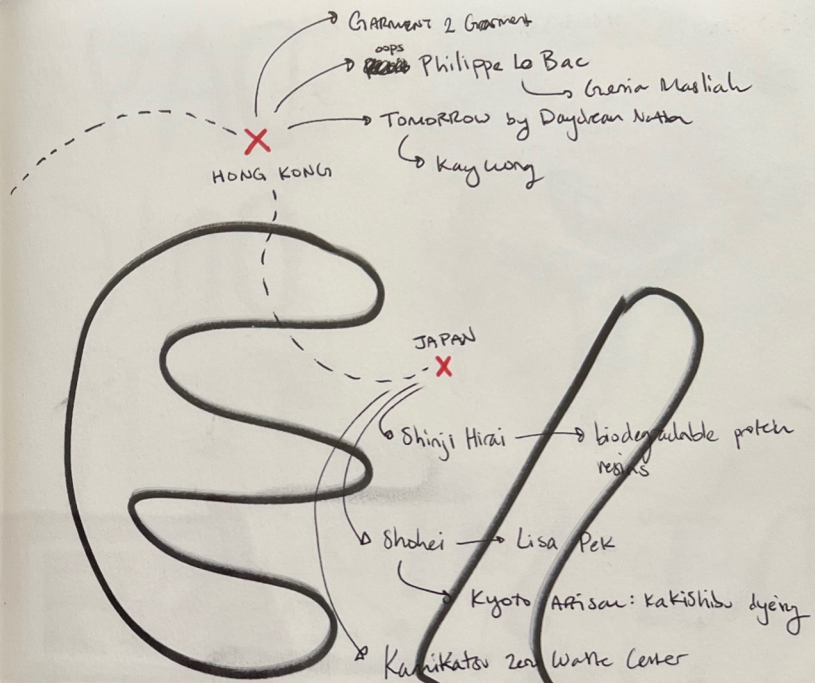 GARMENT 2 Garment
oops
Philippe Lo Bac
Genia Masliah
TOMORROW by Daydream Nation
Kay Wong
HONG KONG
JAPAN
Shinji Hirai
biodegradable protein
resins
Shohei
Lisa Pek
Kyoto Artisan: Kakishibu dyeing
Kamikatsu Zero Waste Center